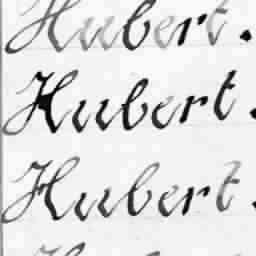 Hubert.
Hubert.
Hubert.